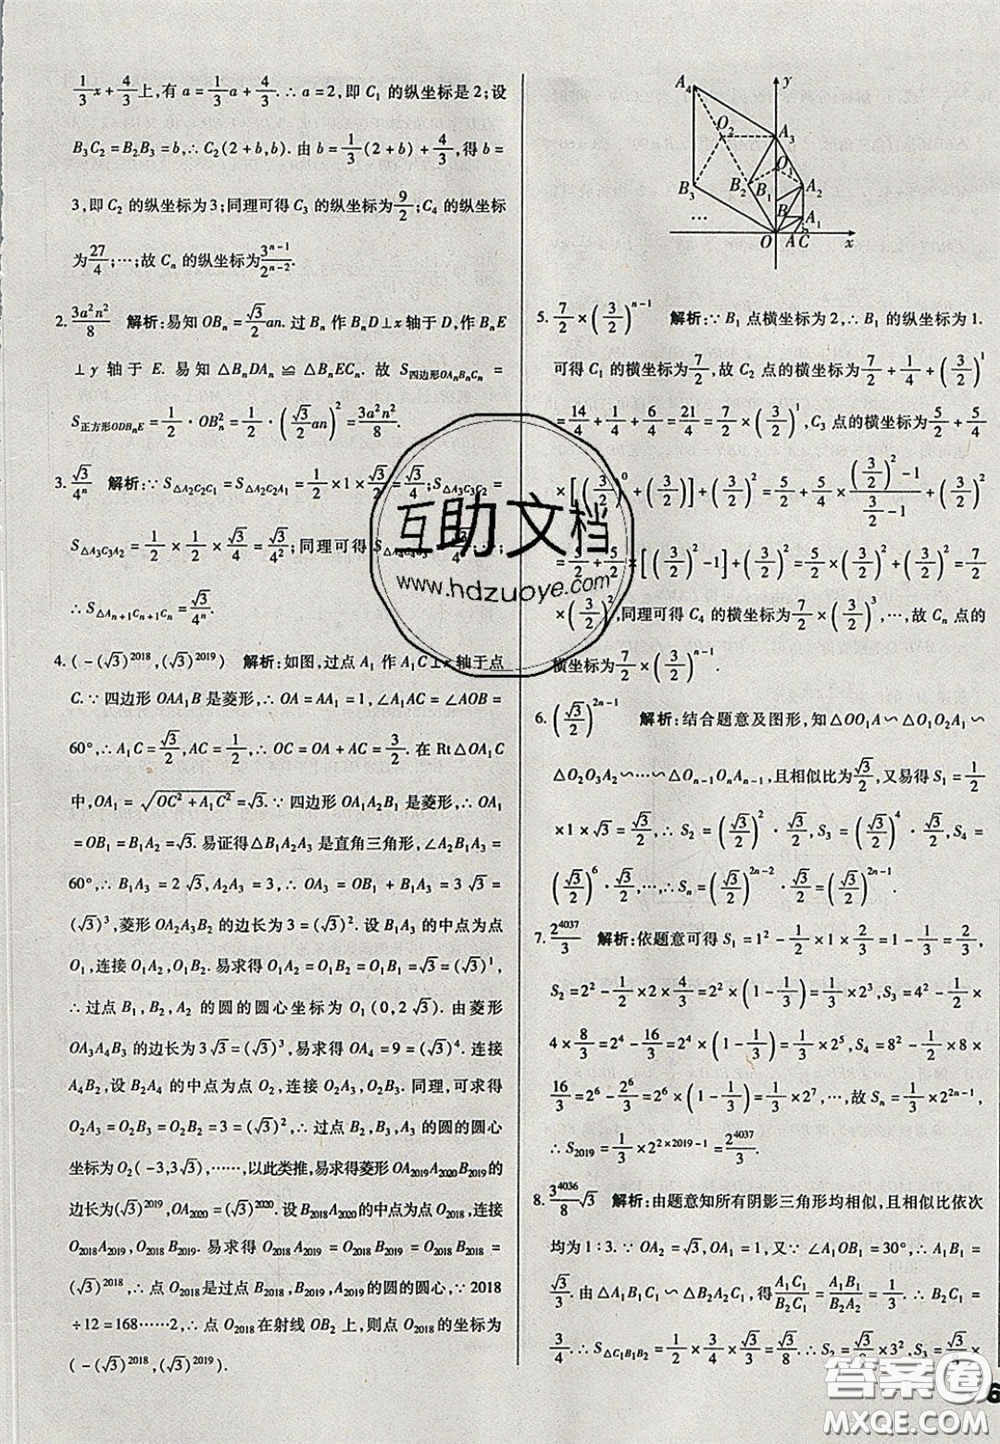 1/3 x+4/3上,有 a=1/3 a+4/3.∴a=2,即 C₁ 的纵坐标是2;设
B₃C₂=B₂B₃=b,∴C₂(2+b,b).由b=1/3(2+b)+4/3,得 b=
3,即 C₂ 的纵坐标为3;同理可得 C₃ 的纵坐标为9/2;C₄ 的纵坐标
为27/4;…;故 Cₙ 的纵坐标为3ⁿ⁻¹/2ⁿ⁻².
2. 3a²n²/8 解析:易知 OBₙ=√3/2 an. 过 Bₙ 作 BₙD⊥x 轴于 D,作 BₙE
⊥y 轴于 E. 易知 △BₙDAₙ ≌ △BₙECₙ. 故 S四边形OAₙBₙCₙ =
S正方形ODBₙE=1/2·OBₙ²=1/2·(√3/2 an)²=3a²n²/8.
3. √3/4ⁿ 解析:∵S△A₂C₂C₁=S△A₂C₂A₁=1/2×1×√3/2=√3/4;S△A₃C₃C₂=
S△A₃C₃A₂=1/2×1/2×√3/4=√3/4²;同理可得 S
∴S△Aₙ₊₁Cₙ₊₁Cₙ=√3/4ⁿ.
4. (-(√3)²⁰¹⁸,(√3)²⁰¹⁹) 解析:如图,过点 A₁ 作 A₁C⊥x 轴于点
C.∵四边形 OAA₁B 是菱形,∴OA=AA₁=1,∠A₁AC=∠AOB=
60°,∴A₁C=√3/2,AC=1/2,∴OC=OA+AC=3/2. 在 Rt△OA₁C
中,OA₁=√(OC²+A₁C²)=√3.∵四边形 OA₁A₂B₁ 是菱形,∴OA₁
=OB₁=A₁A₂=B₁A₂=√3. 易证得△B₁A₂A₃ 是直角三角形,∠B₁A₂B₂=
60°,∴B₁A₃=2√3,A₂A₃=3,∴OA₃=OB₁+B₁A₃=3√3=
(√3)³,∴菱形 OA₂A₃B₂ 的边长为3=(√3)². 设 B₁A₃ 的中点为点
O₁,连接 O₁A₂,O₁B₂. 易求得 O₁A₃=O₁A₂=O₁B₁=√3=(√3)¹,
∴过点 B₁,B₂,A₂ 的圆的圆心坐标为 O₁(0,2√3). 由菱形
OA₃A₄B₃ 的边长为3√3=(√3)³. 易求得 OA₄=9=(√3)⁴. 连接
A₄B₂,设 B₂A₄ 的中点为点 O₂,连接 O₂A₃,O₂B₃. 同理,可求得
O₂A₃=O₂B₃=O₂B₂=3=(√3)²,∴过点 B₂,B₃,A₃ 的圆的圆心
坐标为 O₂(-3,3√3),……,以此类推,易求得菱形 OA₂₀₁₉A₂₀₂₀B₂₀₁₉
的边长为(√3)²⁰¹⁹,OA₂₀₂₀=(√3)²⁰²⁰. 设 B₂₀₁₈A₂₀₂₀的中点为点O₂₀₁₈,连接
O₂₀₁₈A₂₀₁₉,O₂₀₁₈B₂₀₁₉. 易求得 O₂₀₁₈A₂₀₁₉=O₂₀₁₈B₂₀₁₉=O₂₀₁₈B₂₀₁₈=
(√3)²⁰¹⁸,∴点 O₂₀₁₈是过点 B₂₀₁₈,B₂₀₁₉,A₂₀₁₉的圆的圆心,∵2018
÷12=168……2,∴点 O₂₀₁₈在射线 OB₂ 上,则点 O₂₀₁₈的坐标为
(-(√3)²⁰¹⁸,(√3)²⁰¹⁹).
A₄ y
O₂ A₃
O₁
B₃ B₂ B₁ A₂
… B A₁
O A C x
5. 7/2×(3/2)ⁿ⁻¹ 解析:∵B₁ 点横坐标为2,∴B₁ 的纵坐标为1.
可得 C₁ 的横坐标为7/2,故 C₂ 点的横坐标为7/2+1/4+(3/2)²
=14/4+1/4+6/4=21/4=7/2×(3/2)¹,C₃ 点的横坐标为5/2+5/4
×[(3/2)⁰+(3/2)]+(3/2)²=5/2+5/4×((3/2)²-1)/(3/2-1)+(3/2)²
=5/2+5/2×[(3/2)²-1]+(3/2)²=5/2+5/2×(3/2)²+(3/2)²=7/2
×(3/2)²,同理可得 C₄ 的横坐标为7/2×(3/2)³,…,故 Cₙ 点的
横坐标为7/2×(3/2)ⁿ⁻¹.
6. (√3/2)²ⁿ⁻¹ 解析:结合题意及图形,知△OO₁A∽△O₁O₂A₁∽
△O₂O₃A₂∽…∽△Oₙ₋₁OₙAₙ₋₁,且相似比为√3/2,又易得 S₁=1/2
×1×√3=√3/2,∴S₂=(√3/2)²·√3/2,S₃=(√3/2)⁴·√3/2,S₄=
(√3/2)⁶·√3/2,…,∴Sₙ=(√3/2)²ⁿ⁻²·√3/2=(√3/2)²ⁿ⁻¹.
7. 2⁴⁰³⁷/3 解析:依题意可得 S₁=1²-1/2×1×2/3=1-1/3=2/3,
S₂=2²-1/2×2×4/3=2²×(1-1/3)=1/3×2³,S₃=4²-1/2×
4×8/3=2⁴-16/3=2⁴×(1-1/3)=1/3×2⁵,S₄=8²-1/2×8×
16/3=2⁶-2⁶/3=2⁶×(1-1/3)=1/3×2⁷,…,故 Sₙ=1/3×2²ⁿ⁻¹,
∴S₂₀₁₉=1/3×2²ˣ²⁰¹⁹⁻¹=2⁴⁰³⁷/3.
8. 3⁴⁰³⁶/8 √3 解析:由题意知所有阴影三角形均相似,且相似比依次
均为1:3.∵OA₂=√3,OA₁=1,又∵∠A₁OB₁=30°,∴A₁B₁=
√3/3. 由△A₁B₁C₁∽△B₂A₂C₁,易得A₁C₁/B₂C₁=A₁B₁/B₂A₂=1/3.∴B₂C₁=
3/4.∴S△C₁B₁B₂=1/2×√3/3×3/4=√3/8.∴S₂=√3/8×3²,S₃=√3/8×
互助文档
www.hdzuoye.com
答案圈
MXQE.COM